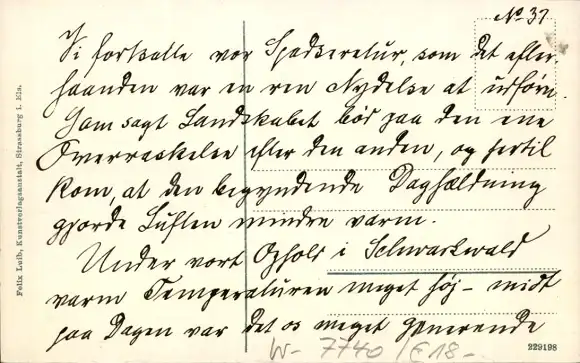 No 37
Vi fortsatte vor Spadseretur, som det efter-
haanden var en ren Nydelse at udføre.
Som sagt Landskabet bød paa den ene
Overraskelse efter den anden, og hertil
kom, at den begyndende Daghældning
gjorde Luften mindre varm.
Under vort Ophold i Schwarzwald
varm Temperaturen meget høj - midt
paa Dagen var det os meget generende
Felix Luib, Kunstverlagsanstalt, Strassburg i. Els.
W- 7740 / E 18-
229198